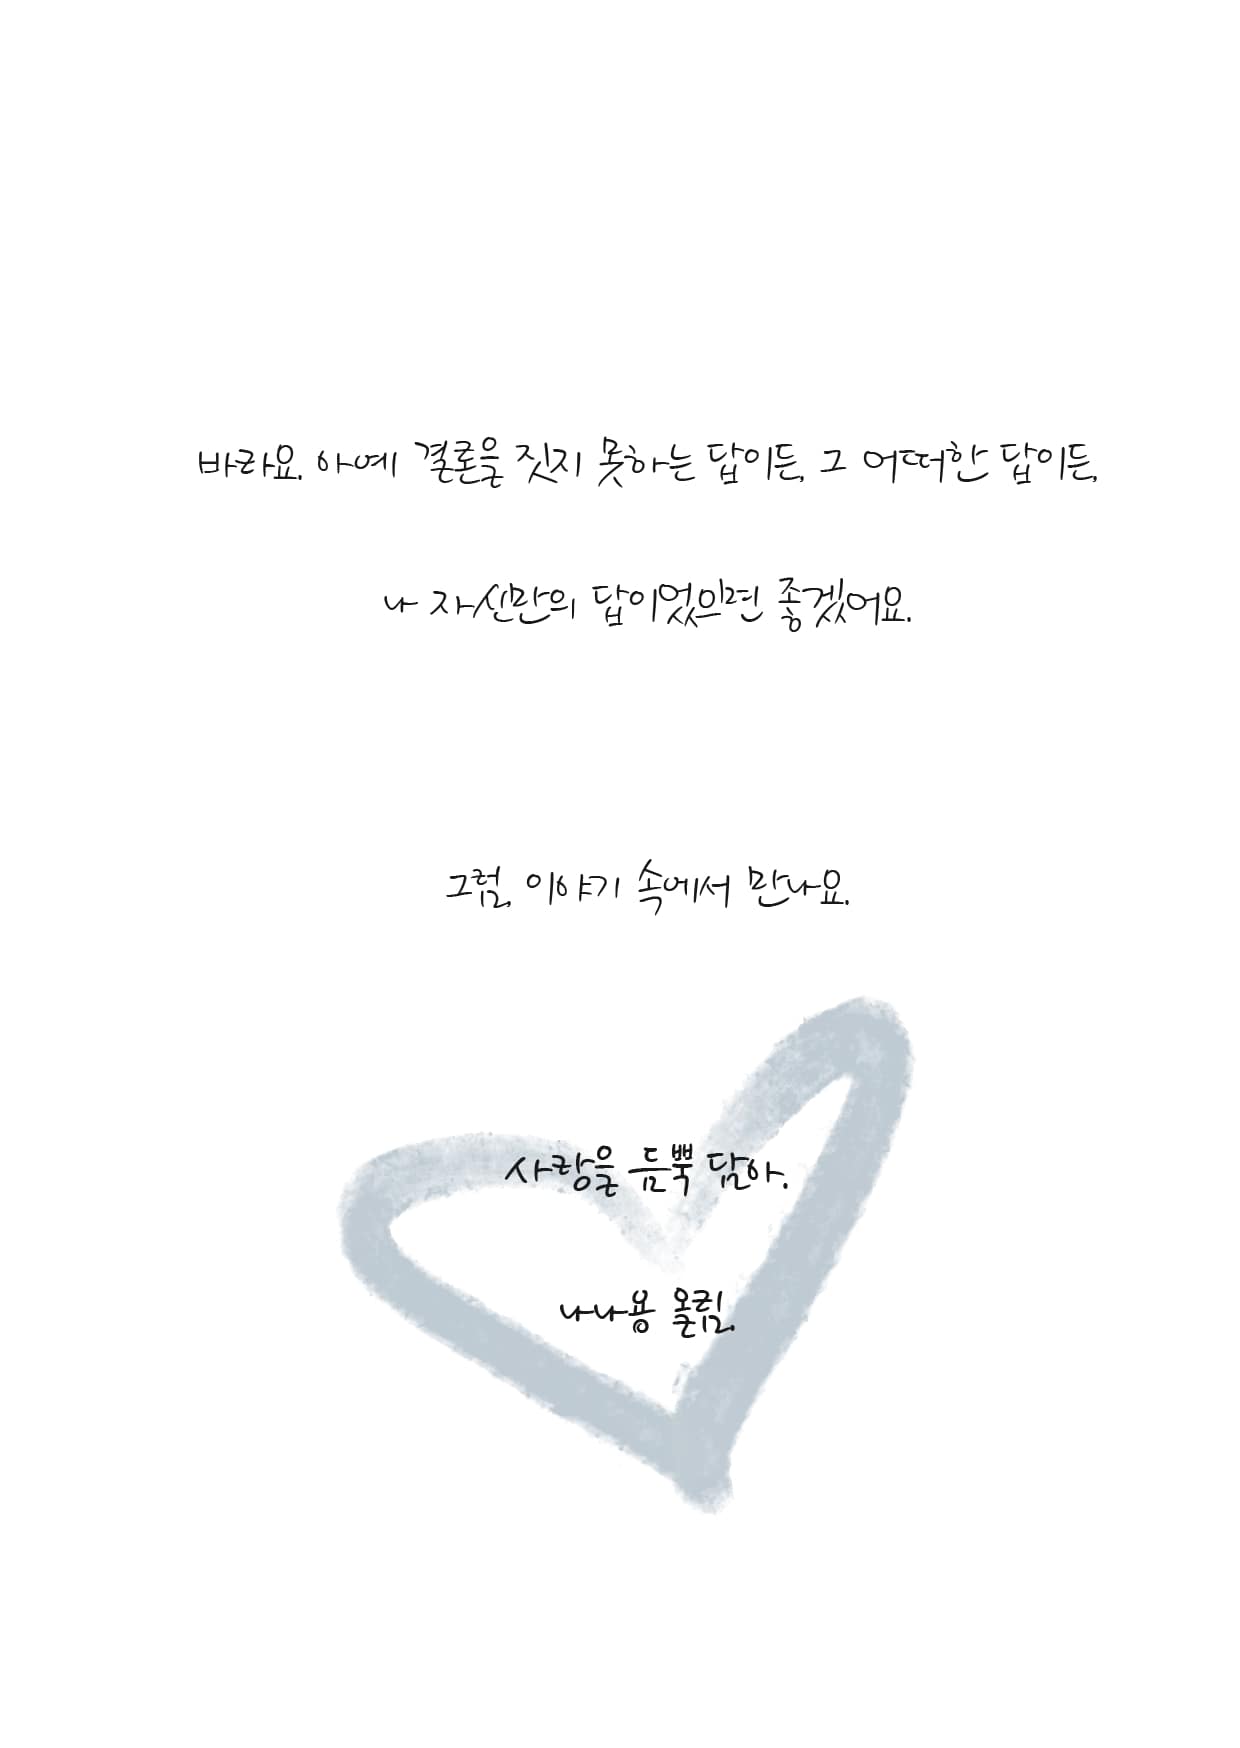 바라요. 아예 결론을 짓지 못하는 답이든, 그 어떠한 답이든,
나 자신만의 답이었으면 좋겠어요.
그럼, 이야기 속에서 만나요.
사랑을 듬뿍 담아.
나나용 올림.